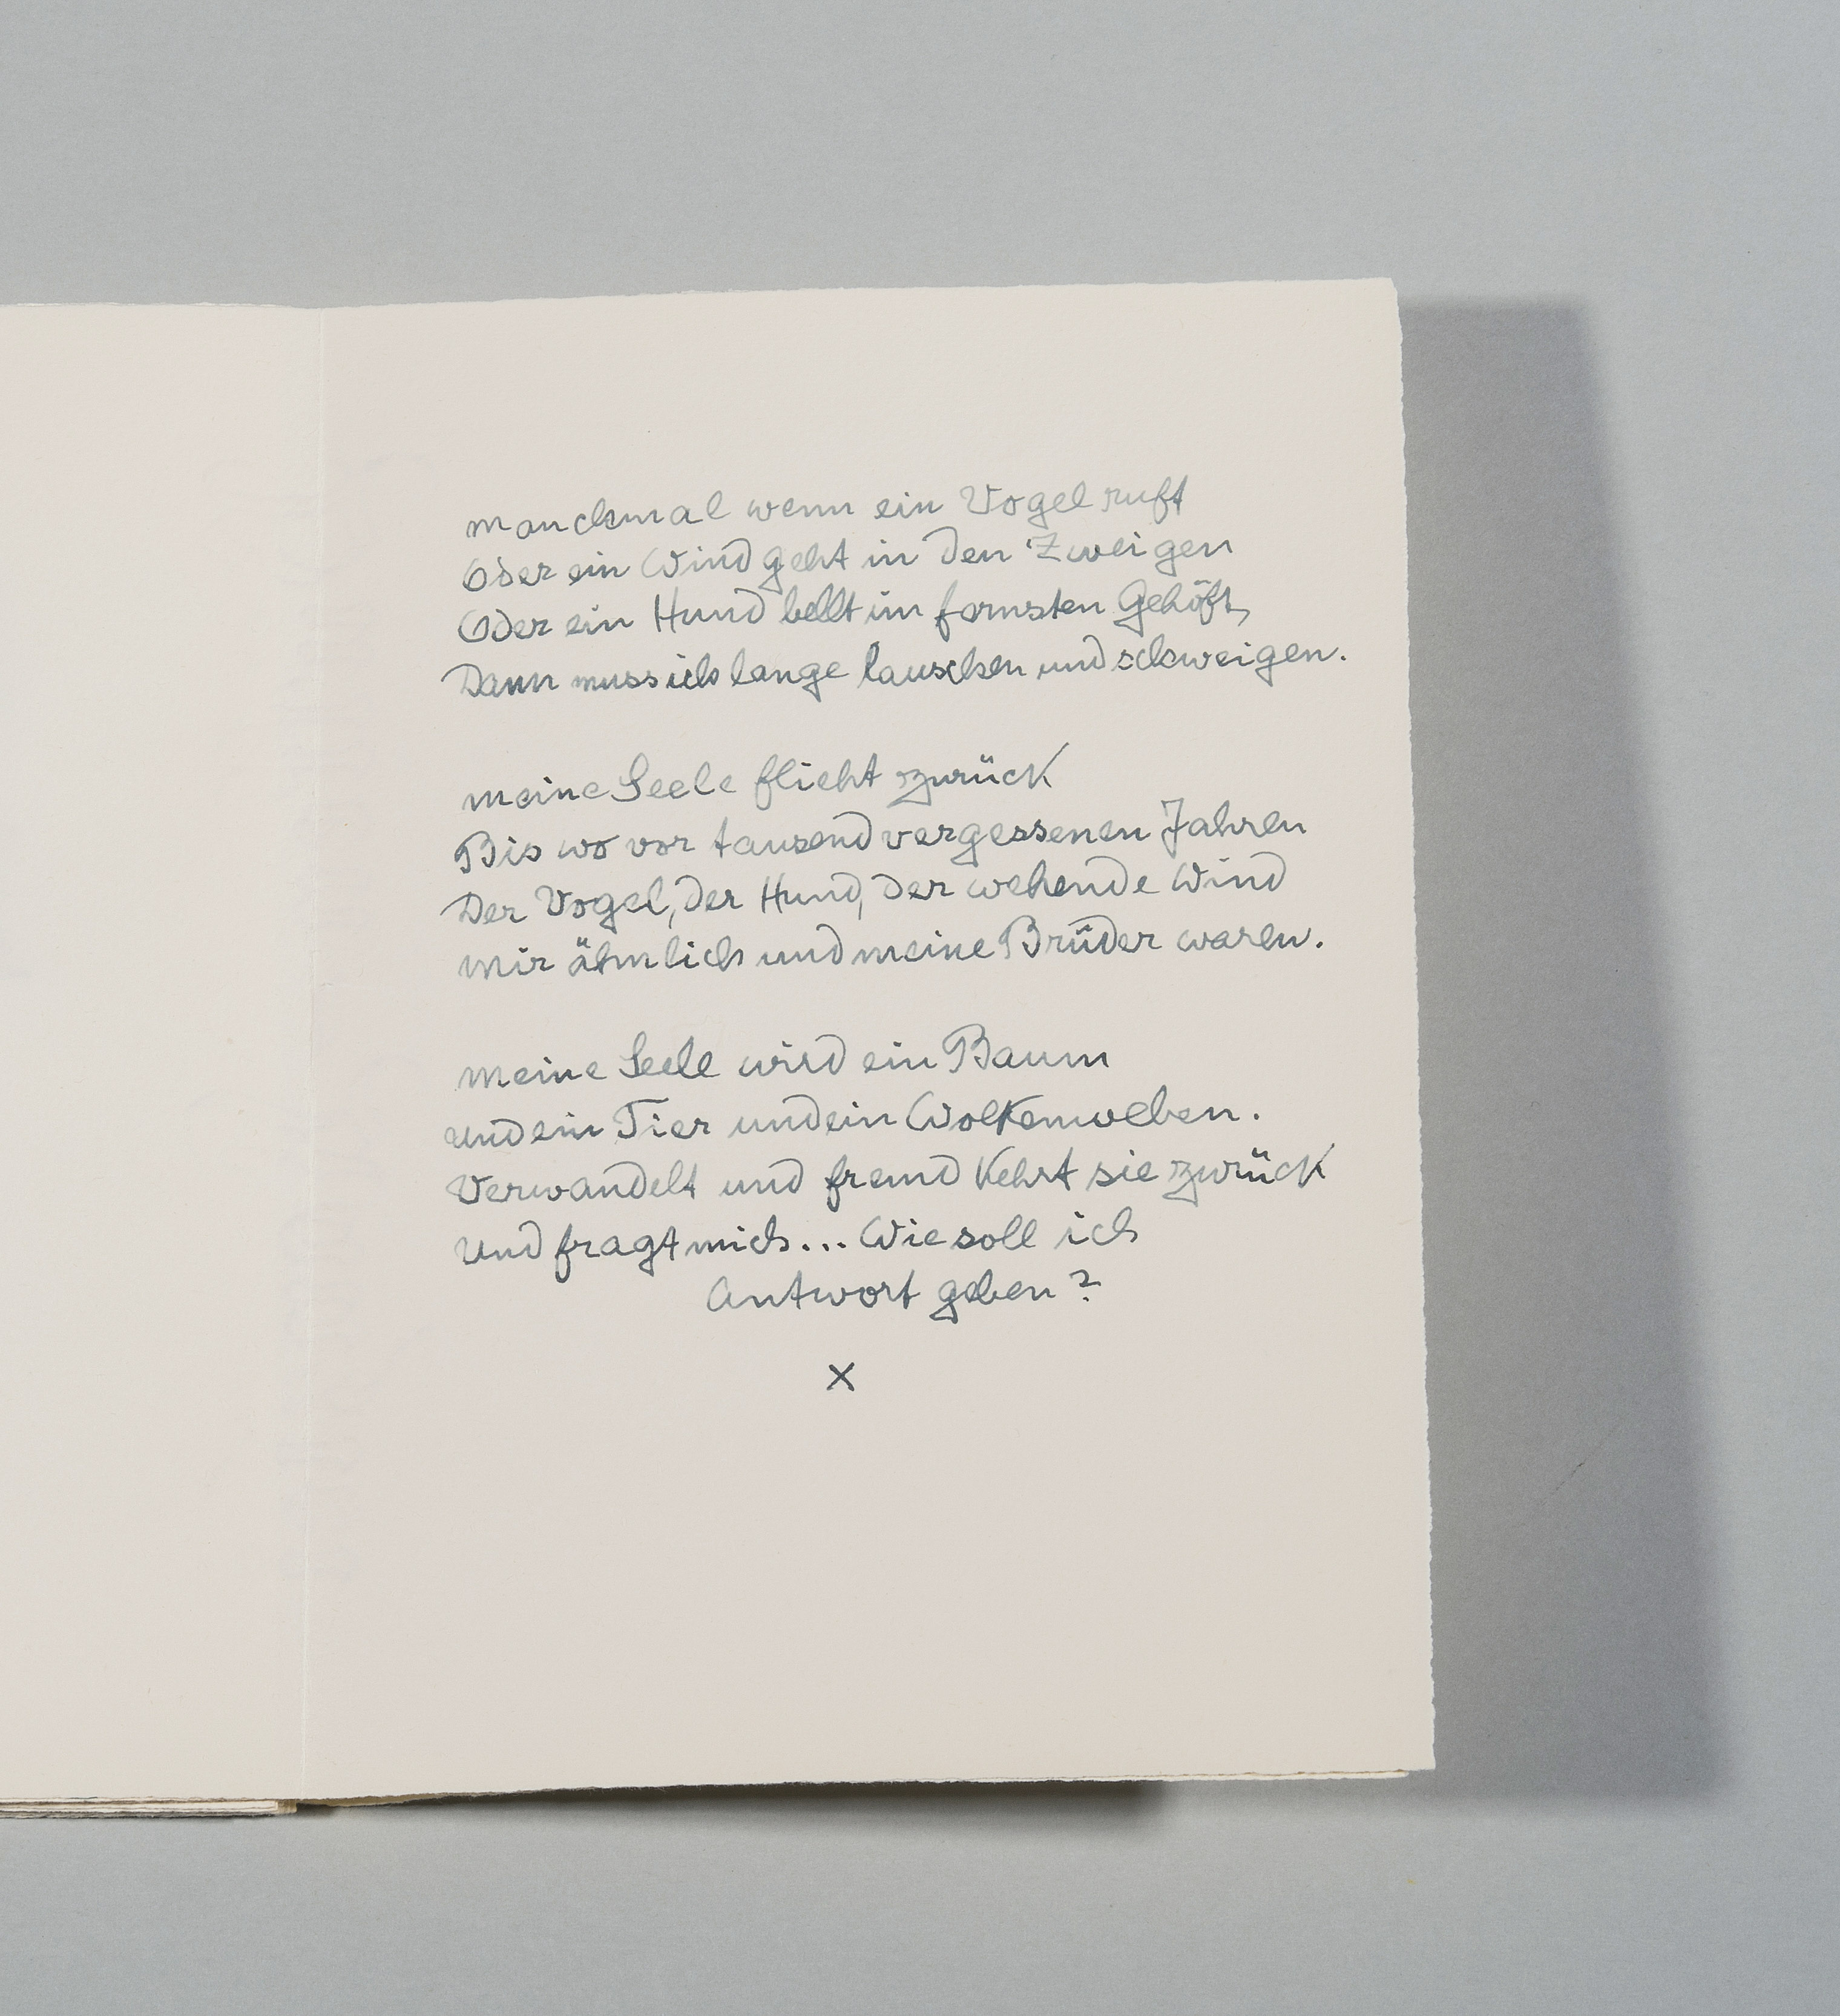 Manchmal wenn ein Vogel ruft
Oder ein Wind geht in den Zweigen
Oder ein Hund bellt im fernsten Gehöft,
Dann muss ich lange lauschen und schweigen.
Meine Seele flieht zurück
Bis wo vor tausend vergessenen Jahren
Der Vogel, der Hund, der wehende Wind
Mir ähnlich und meine Brüder waren.
Meine Seele wird ein Baum
Und ein Tier und ein Wolkenweben.
Verwandelt und fremd kehrt sie zurück
Und fragt mich... Wie soll ich
Antwort geben?
x